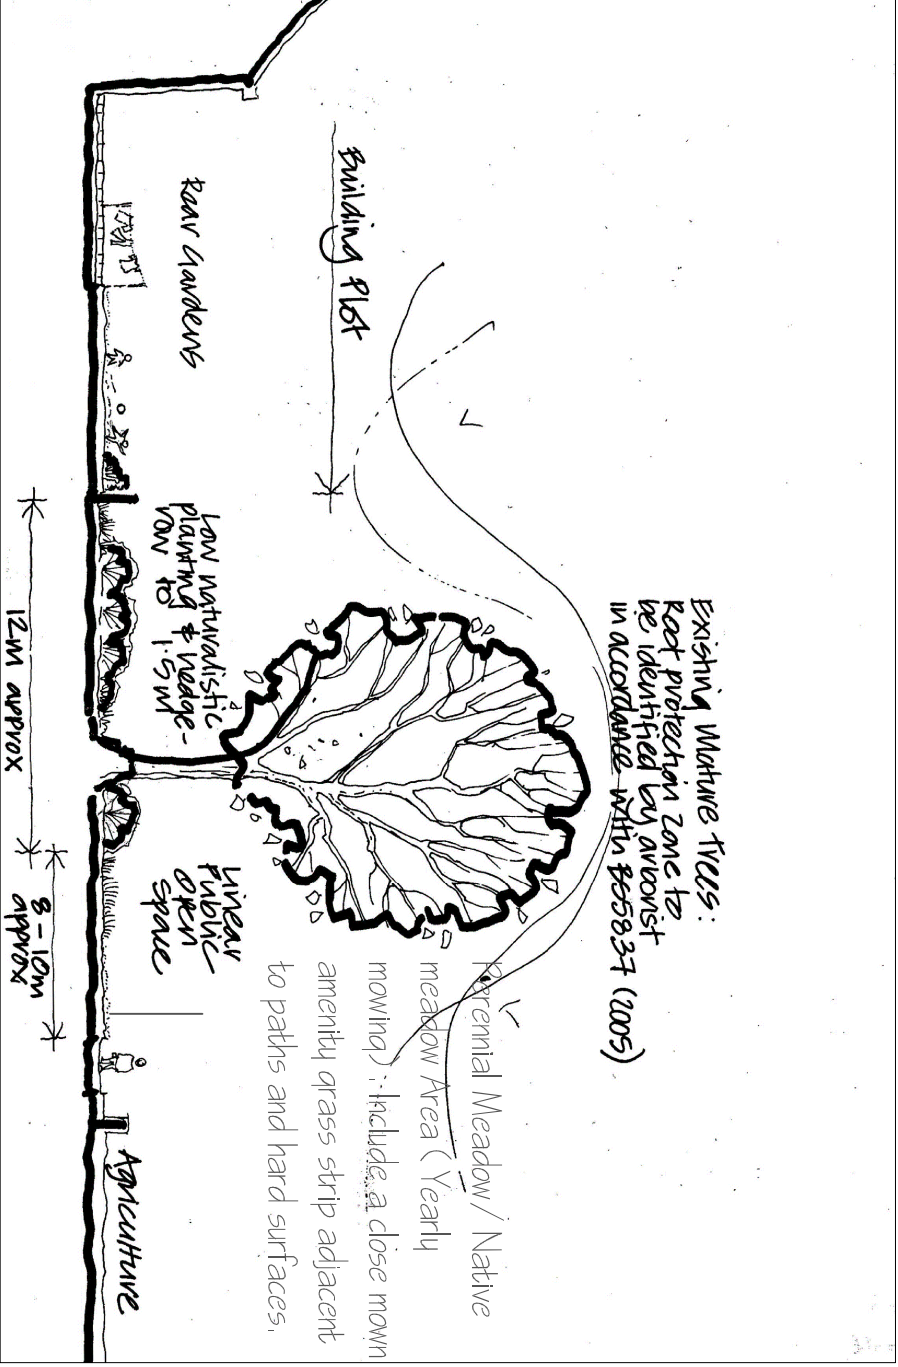 Existing Mature Trees:
Root protection zone to
be identified by arborist
in accordance with BS5837 (2005)
Building Plot
Rear Gardens
Low naturalistic
planting & hedge-
row to 1.5m
Linear
Public
Open
Space
Perennial Meadow / Native
meadow Area (Yearly
mowing). Include a close mown
amenity grass strip adjacent
to paths and hard surfaces.
Agriculture
12m approx
8-10m
approx